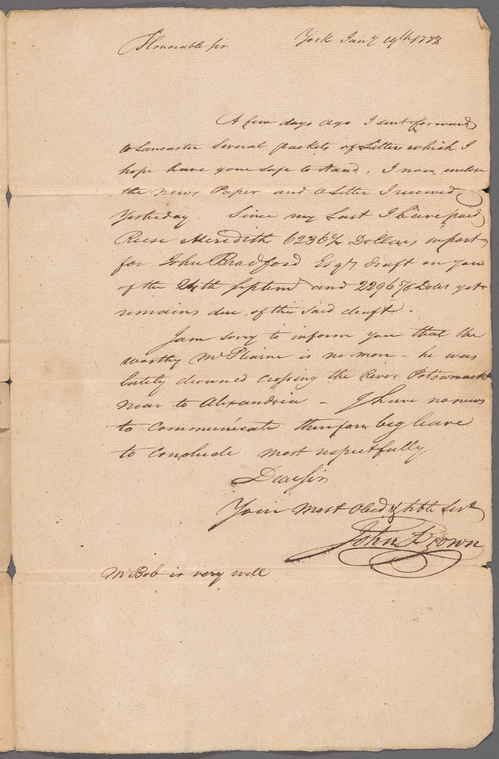 Honorable sir York Jany 19th 1778
A few days ago I sent forward
to Lancaster several packets of Letters which I
hope have gone safe to hand, I now enclose
the News Paper and a Letter I received
Yesterday. Since my Last I have paid
Reese Meredith 6236 Dollars in part
for John Bradford Esqr draft on you
of the septem and 2296 Dolrs yet
remains due of the said draft.
I am sorry to inform you that the
worthy Mr is no more – he was
lately drowned crossing the River Potowmack
near to Alexandria – I have no news
to communicate therefore beg leave
to conclude most respectfully
Dear sir
Your Most Obedt & hble Servt
John Brown
Mr Bob is very well